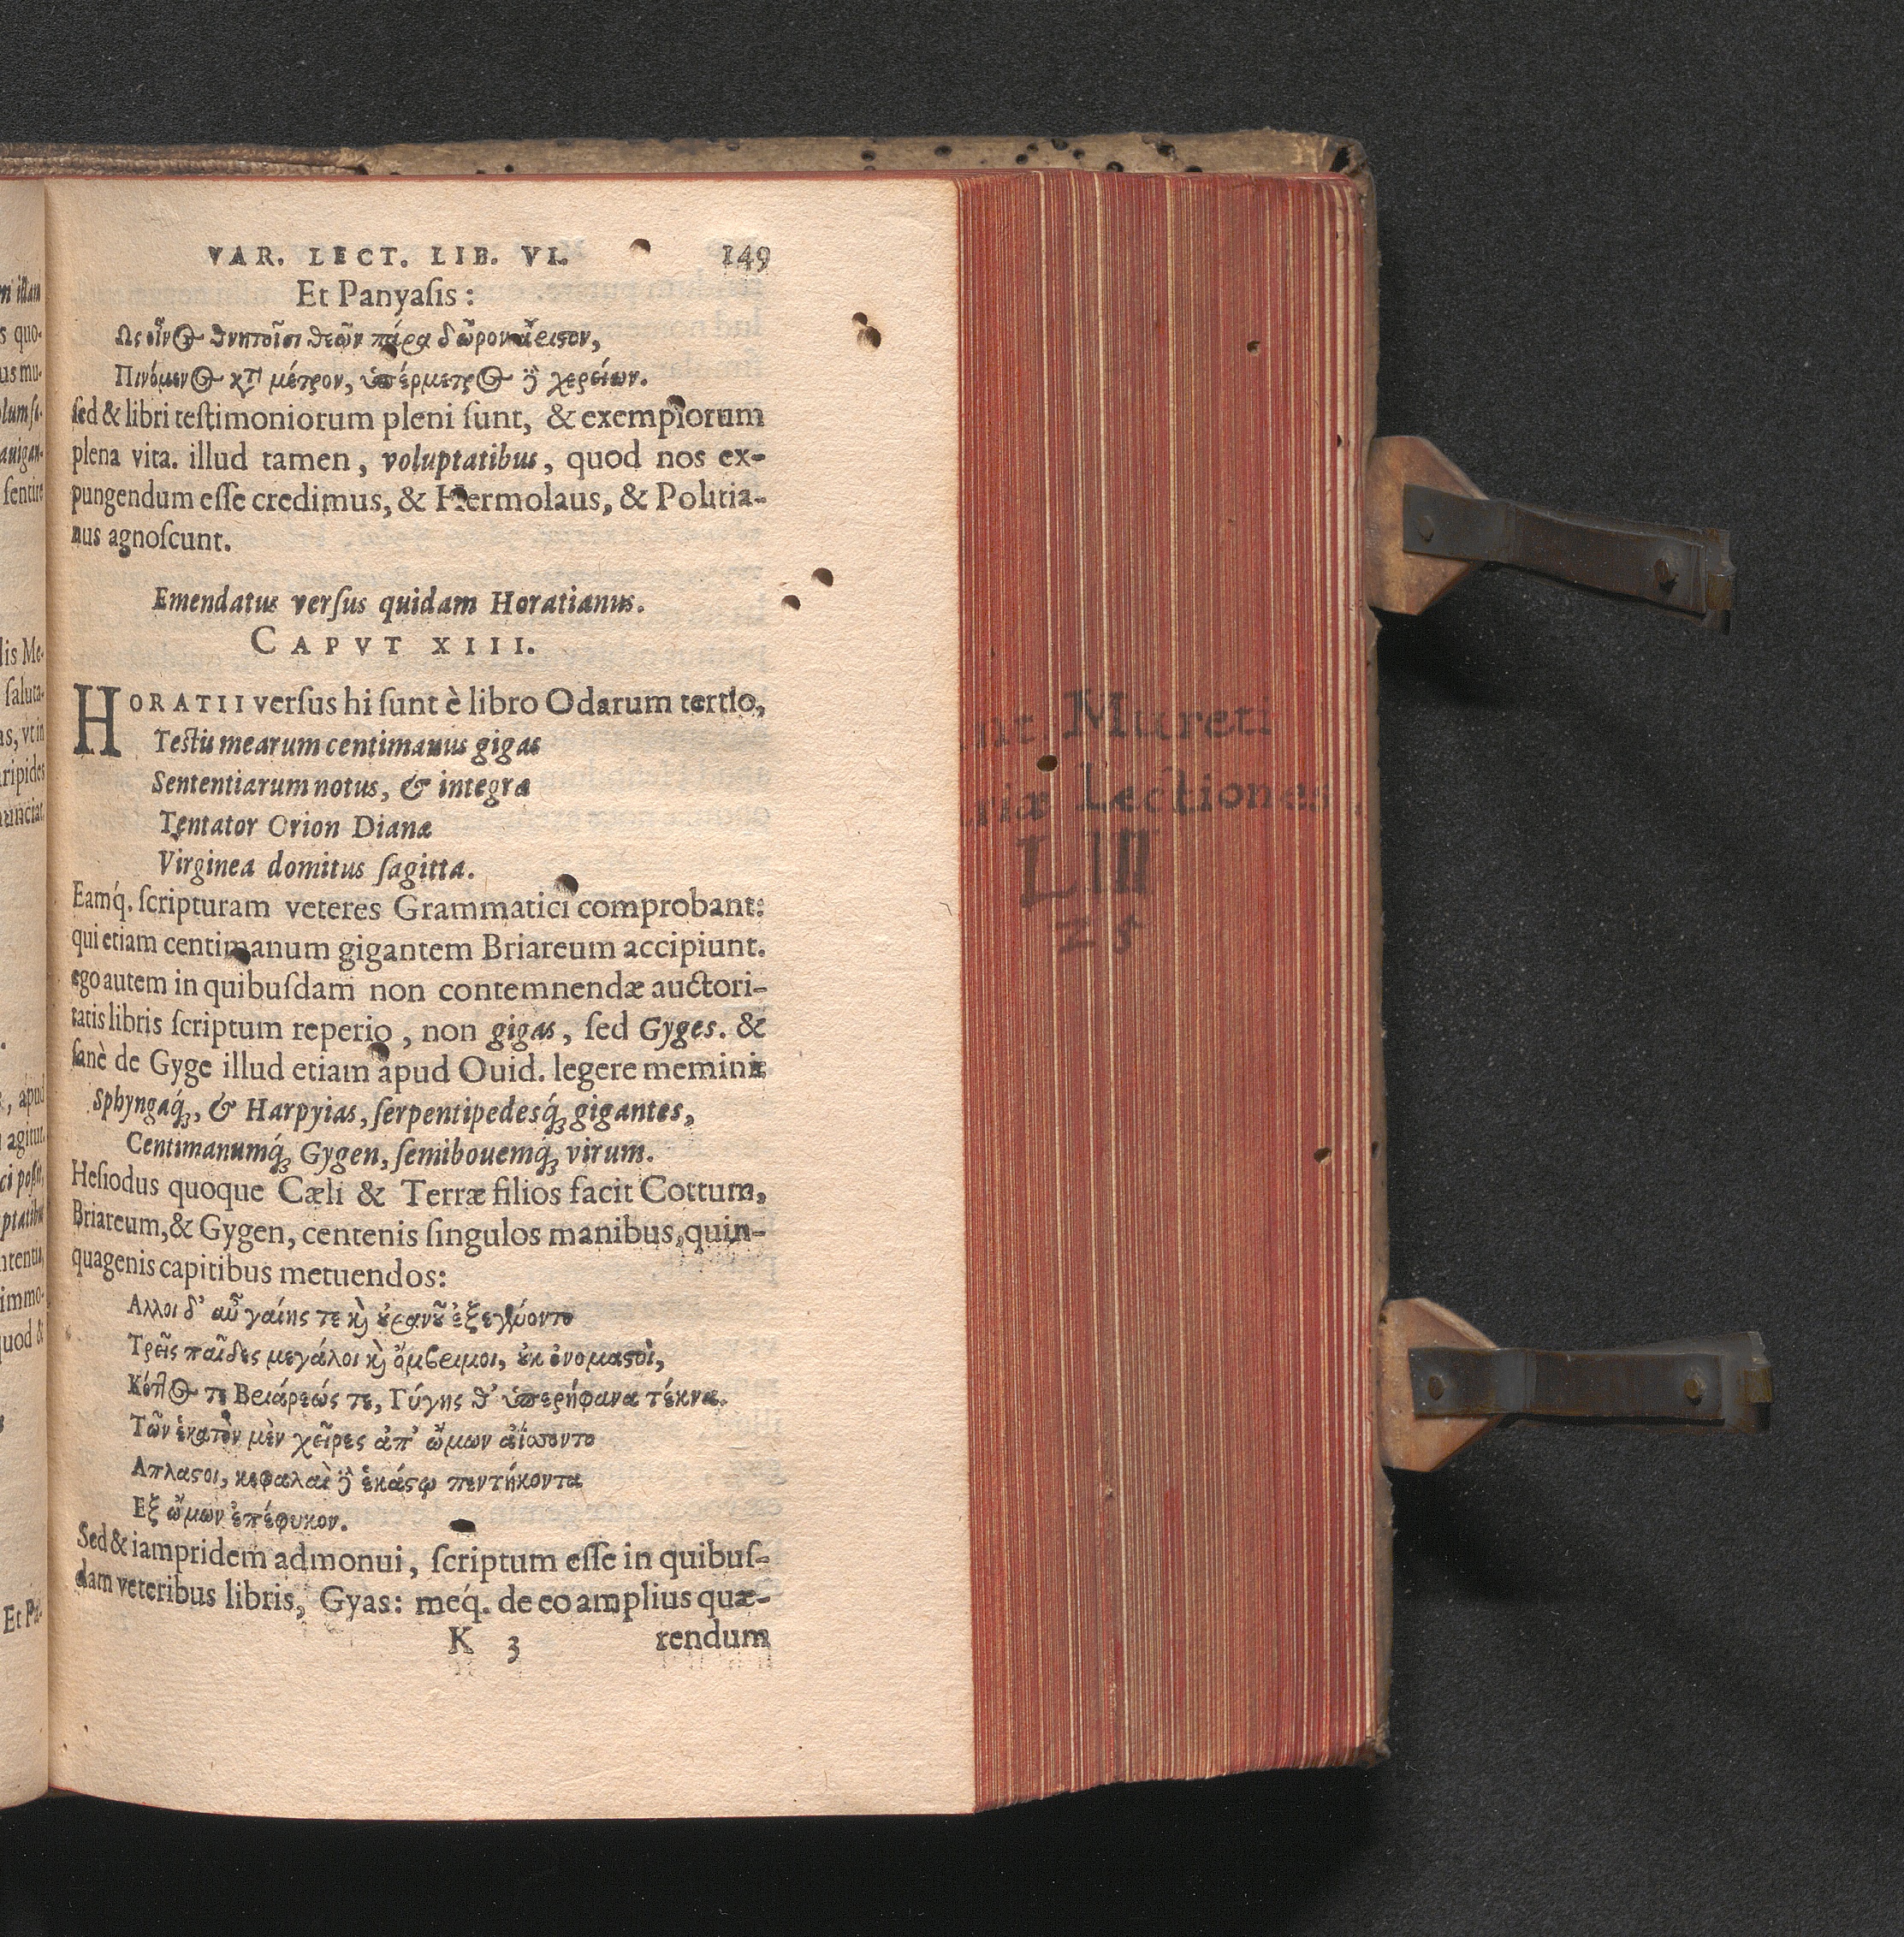 VAR. LECT. LIB. VI. 149
Et Panyasis:
Ως οἶν⊙ θνητοῖσι θεῶν πάρα δῶρον ἄριστον,
Πινόμεν⊙ κτ̀ μέτρον, ὑπέρμετρ⊙ ἢ χερείων.
sed & libri testimoniorum pleni sunt, & exemplorum
plena vita. illud tamen, voluptatibus, quod nos ex-
pungendum esse credimus, & Hermolaus, & Politia-
nus agnoscunt.
Emendatus versus quidam Horatianus.
CAPVT XIII.
HORATII versus hi sunt è libro Odarum tertio,
Testis mearum centimanus gigas
Sententiarum notus, & integræ
Tentator Orion Dianæ
Virginea domitus sagitta.
Eamq́. scripturam veteres Grammatici comprobant:
qui etiam centimanum gigantem Briareum accipiunt.
ego autem in quibusdam non contemnendæ auctori-
tatis libris scriptum reperio, non gigas, sed Gyges. &
sanè de Gyge illud etiam apud Ouid. legere memini:
Sphyngaq́;, & Harpyias, serpentipedesq́; gigantes,
Centimanumq́; Gygen, semibouemq́; virum.
Hesiodus quoque Cæli & Terræ filios facit Cottum,
Briareum, & Gygen, centenis singulos manibus, quin-
quagenis capitibus metuendos:
Αλλοι δ' αὖ γαίης τε κỳ ȣ̓ρανȣ̃ ἐξεγένοντο
Τρεῖς παῖδες μεγάλοι κỳ ὄμβριμοι, ȣ̓κ ὀνομαστοὶ,
Κόττ⊙ τε Βριάρεώς τε, Γύγης θ' ὑπερήφανα τέκνα.
Τῶν ἑκατὸν μὲν χεῖρες ἀπ' ὤμων ἀΐσσοντο
Απλαστοι, κεφαλαὶ ἢ ἑκάστῳ πεντήκοντα
Εξ ὤμων ἐπέφυκον.
Sed & iampridem admonui, scriptum esse in quibus-
dam veteribus libris, Gyas: meq́. de eo amplius quæ-
K 3 rendum
Mureti
Lectiones
LIII
25